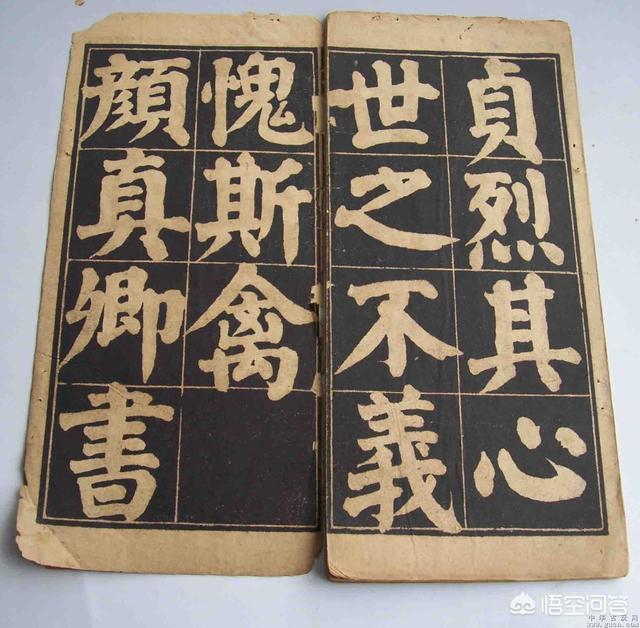 貞烈其心
世之不義
愧斯禽
顏真卿書
悟空问答
中華古玩网
www.guwan.com